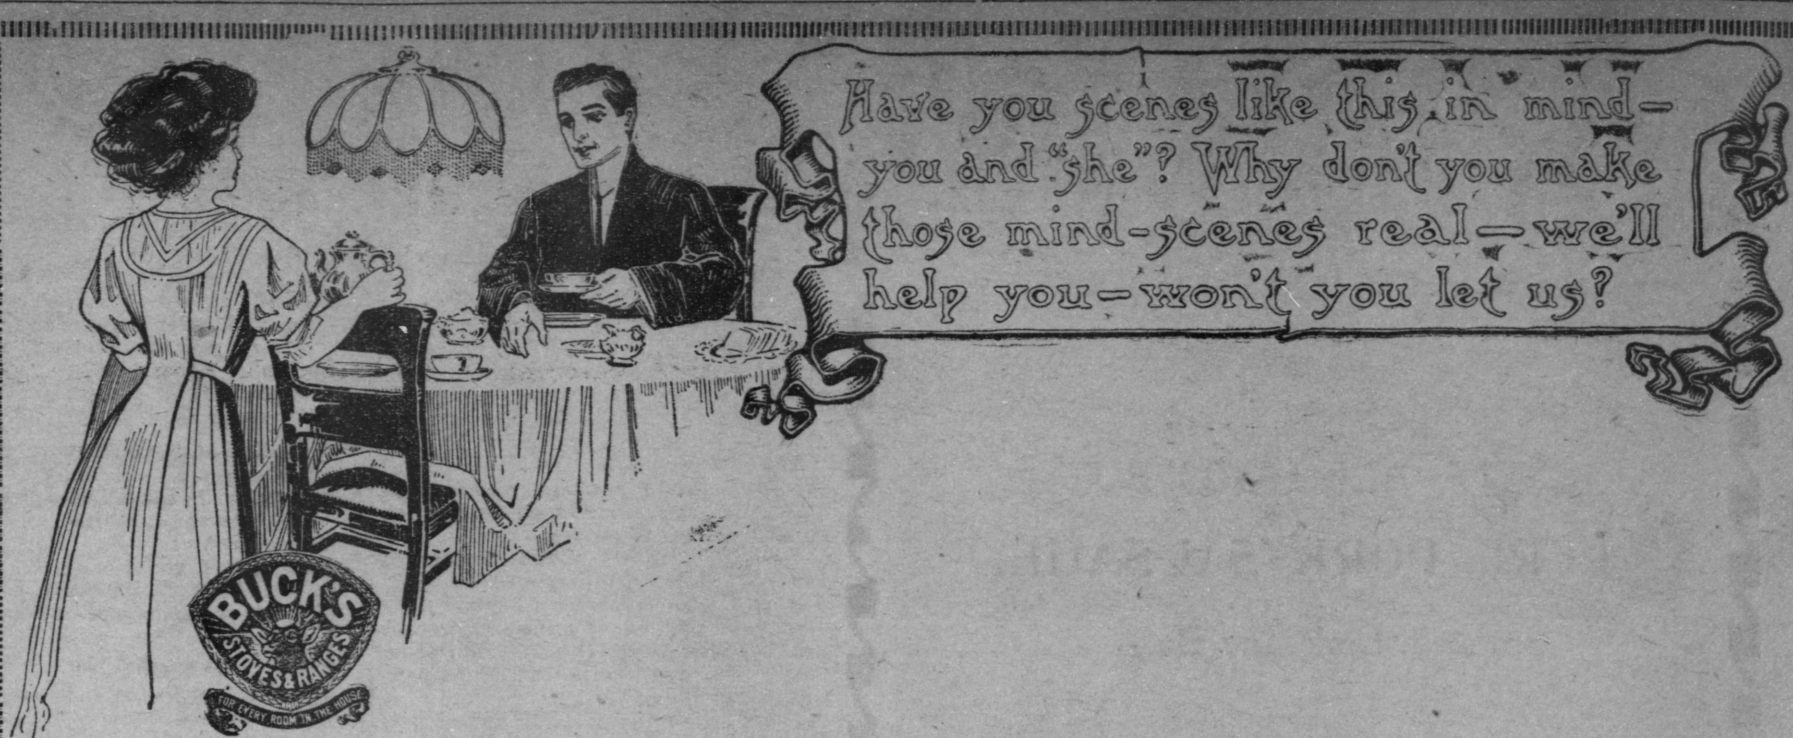 Have you scenes like this in mind—
you and "she"? Why don't you make
those mind-scenes real—we'll
help you—won't you let us?
BUCK'S
STOVES & RANGES
FOR EVERY ROOM IN THE HOUSE